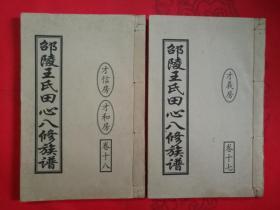 邵陵王氏田心八修族谱
才信房
才和房
卷十八
邵陵王氏田心八修族谱
才義房
卷十七